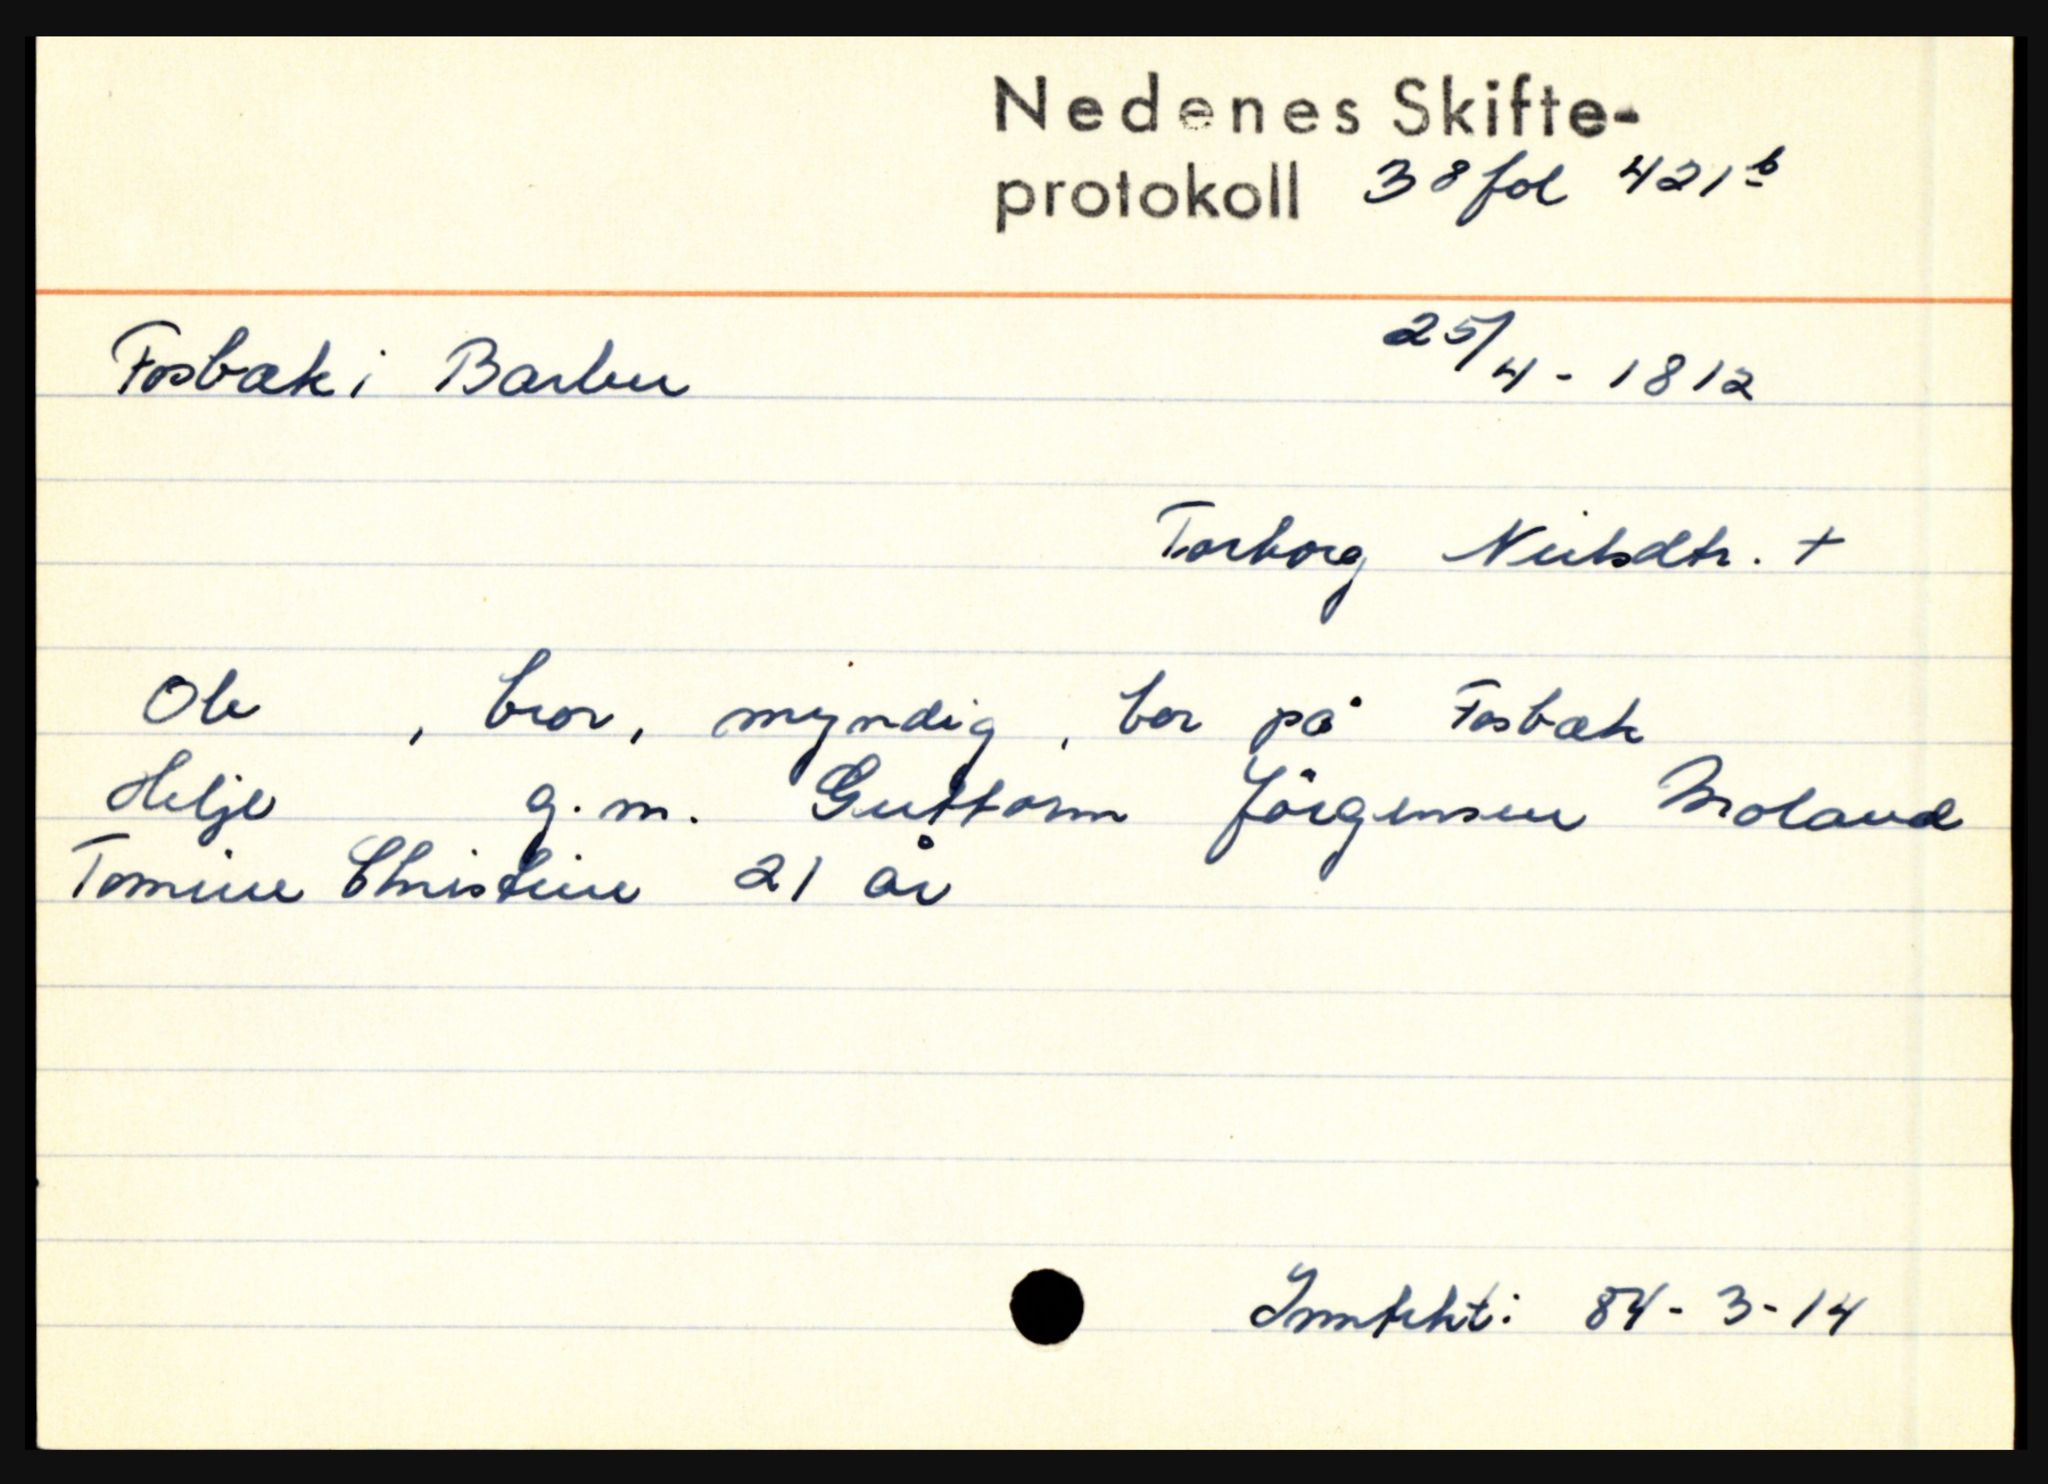 Nedenes Skifte-
protokoll 38 fol 421b
Fosbæk i Barbu 25/4 - 1812
Torborg Nielsdtr. +
Ole , bror, myndig, bor på Fosbæk
Helje g.m. Guttorm Jörgensen Moland
Tomine Christine 21 år
Inntekt: 84-3-14